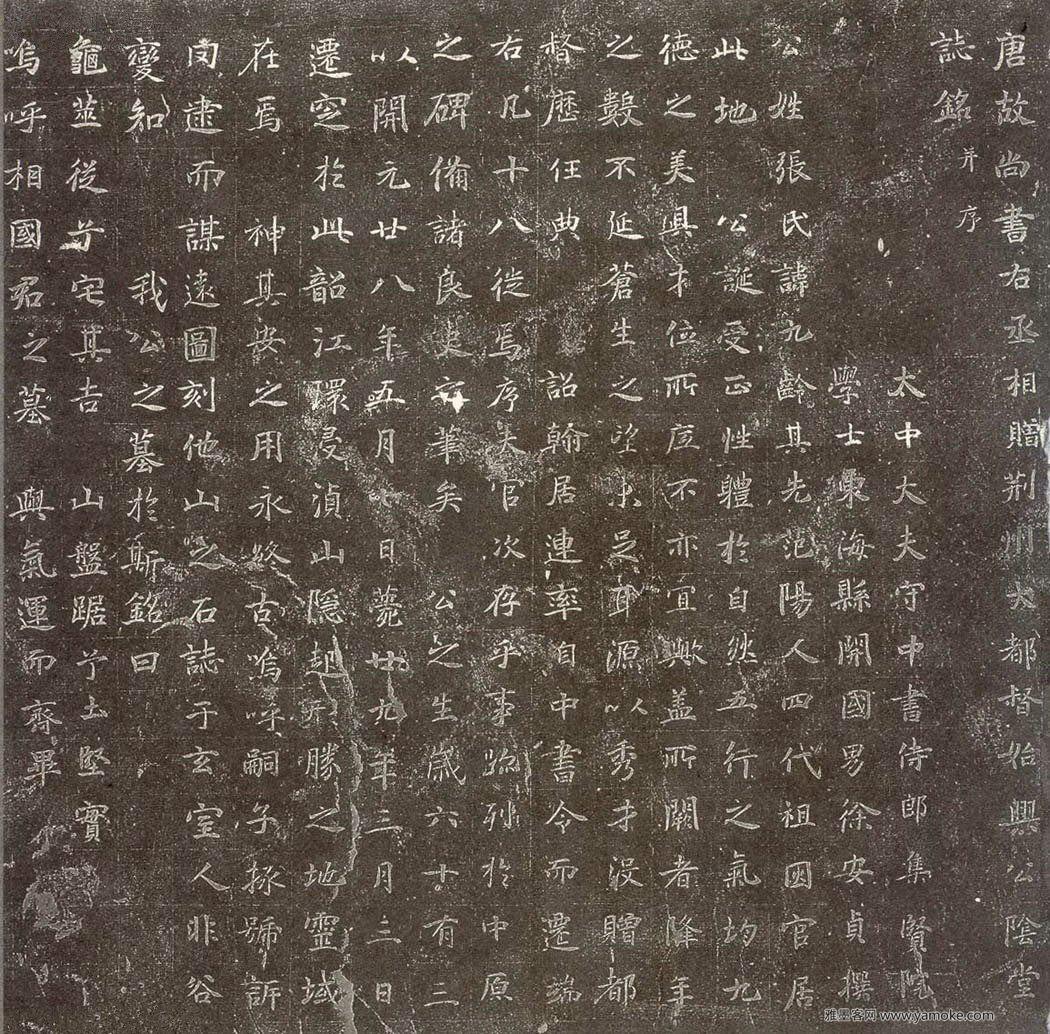 唐故尚書右丞相贈荊州大都督始興公陰堂
誌銘并序
太中大夫守中書侍郎集賢院
學士東海縣開國男徐安貞撰
公姓張氏諱九齡其先范陽人四代祖因官居
此地公誕受正性體於自然五行之氣均九
德之美具才位所底不亦宜歟蓋所闕者降年
之數不延蒼生之望未足耳源以秀才沒贈都
督歷任典詔翰居連率自中書令而遷端
右凡十八徙焉序夫官次存乎事跡列於中原
之碑備諸良史安筆矣公之生歲六十有三
以開元廿八年五月七日薨廿九年三月三日
遷窆於此韶江環浸湞山隱起形勝之地靈域
在焉神其安之用永終古嗚呼嗣子拯號訴
罔逮而謀遠圖刻他山之石誌于玄室人非谷
變知我公之墓於斯銘曰
龜筮從兮宅其吉山盤踞兮土堅實
嗚呼相國君之墓與氣運而齊畢
雅墨客网 www.yamoke.com